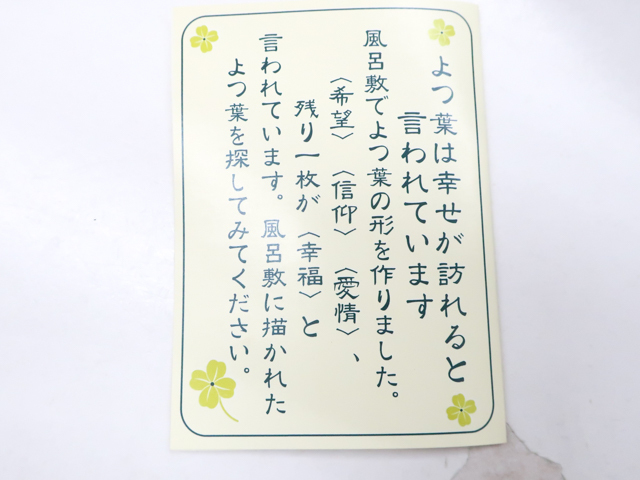 よつ葉は幸せが訪れると
言われています
風呂敷でよつ葉の形を作りました。
〈希望〉〈信仰〉〈愛情〉、
残り一枚が〈幸福〉と
言われています。風呂敷に描かれた
よつ葉を探してみてください。